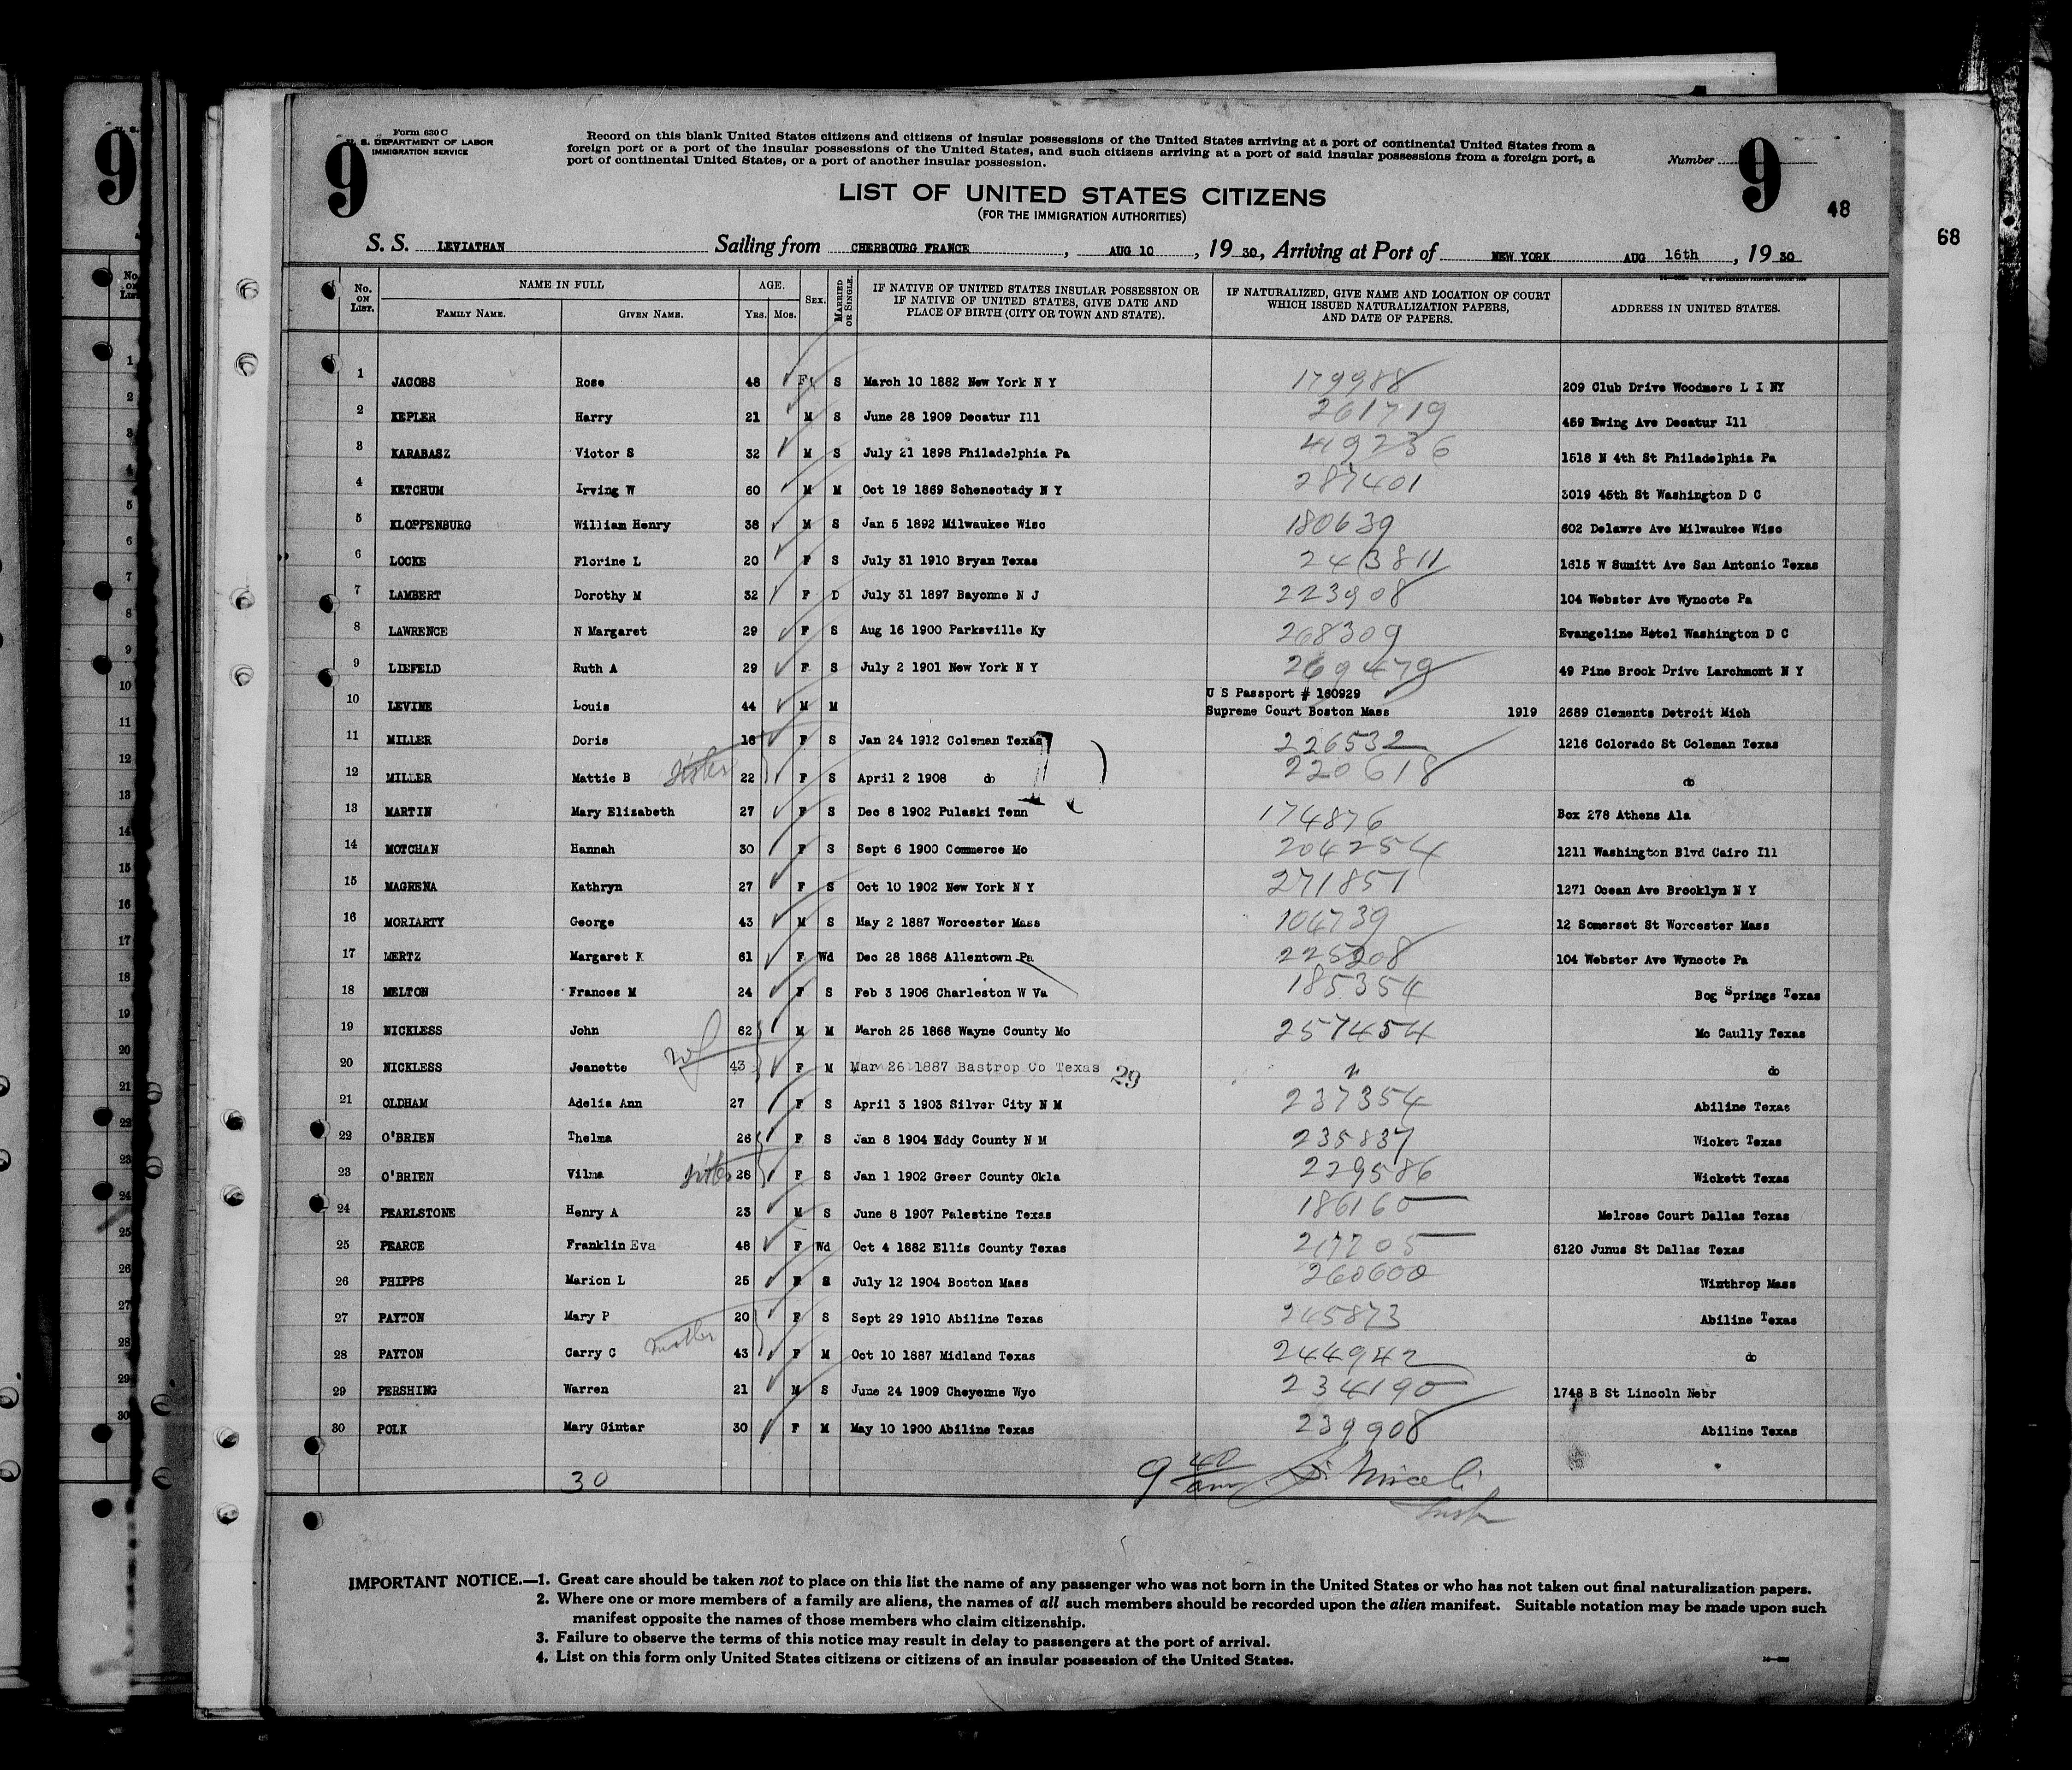 9
Form 630 C
U. S. DEPARTMENT OF LABOR
IMMIGRATION SERVICE
9
Record on this blank United States citizens and citizens of insular possessions of the United States arriving at a port of continental United States from a
foreign port or a port of the insular possessions of the United States, and such citizens arriving at a port of said insular possessions from a foreign port, a
port of continental United States, or a port of another insular possession.
Number 9
48
68
LIST OF UNITED STATES CITIZENS
(FOR THE IMMIGRATION AUTHORITIES)
S. S. LEVIATHAN Sailing from CHERBOURG FRANCE, AUG 10, 19 30, Arriving at Port of NEW YORK AUG 16th, 19 30
No. ON LIST. NAME IN FULL FAMILY NAME. GIVEN NAME. AGE. Yrs. Mos. SEX. MARRIED OR SINGLE. IF NATIVE OF UNITED STATES INSULAR POSSESSION OR IF NATIVE OF UNITED STATES, GIVE DATE AND PLACE OF BIRTH (CITY OR TOWN AND STATE). IF NATURALIZED, GIVE NAME AND LOCATION OF COURT WHICH ISSUED NATURALIZATION PAPERS, AND DATE OF PAPERS. ADDRESS IN UNITED STATES.
1 JACOBS Rose 48 F S March 10 1882 New York N Y 179988 209 Club Drive Woodmere L I NY
2 KEPLER Harry 21 M S June 28 1909 Decatur Ill 261719 459 Ewing Ave Decatur Ill
3 KARABASZ Victor S 32 M S July 21 1898 Philadelphia Pa 419236 1518 N 4th St Philadelphia Pa
4 KETCHUM Irving W 60 M M Oct 19 1869 Schenectady N Y 287401 3019 45th St Washington D C
5 KLOPPENBURG William Henry 38 M S Jan 5 1892 Milwaukee Wisc 180639 602 Delawre Ave Milwaukee Wisc
6 LOCKE Florine L 20 F S July 31 1910 Bryan Texas 243811 1615 W Sumitt Ave San Antonio Texas
7 LAMBERT Dorothy M 32 F D July 31 1897 Bayonne N J 223908 104 Webster Ave Wyncote Pa
8 LAWRENCE N Margaret 29 F S Aug 16 1900 Parksville Ky 268309 Evangeline Hotel Washington D C
9 LIEFELD Ruth A 29 F S July 2 1901 New York N Y 269479 49 Pine Brook Drive Larchmont N Y
U S Passport # 160929
10 LEVINE Louis 44 M M Supreme Court Boston Mass 1919 2689 Clements Detroit Mich
11 MILLER Doris 18 F S Jan 24 1912 Coleman Texas 226532 1216 Colorado St Coleman Texas
12 MILLER Mattie B sister 22 F S April 2 1908 do 220618 do
13 MARTIN Mary Elizabeth 27 F S Dec 8 1902 Pulaski Tenn 174876 Box 278 Athens Ala
14 MOTCHAN Hannah 30 F S Sept 6 1900 Commerce Mo 204254 1211 Washington Blvd Cairo Ill
15 MAGRENA Kathryn 27 F S Oct 10 1902 New York N Y 271851 1271 Ocean Ave Brooklyn N Y
16 MORIARTY George 43 M S May 2 1887 Worcester Mass 104739 12 Somerset St Worcester Mass
17 MERTZ Margaret K 61 F Wd Dec 28 1868 Allentown Pa 225208 104 Webster Ave Wyncote Pa
18 MELTON Frances M 24 F S Feb 3 1906 Charleston W Va 185354 Bog Springs Texas
19 NICKLESS John 62 M M March 25 1868 Wayne County Mo 257454 Mc Caully Texas
20 NICKLESS Jeanette wf 43 F M Mar 26 1887 Bastrop Co Texas 29 " do
21 OLDHAM Adelia Ann 27 F S April 3 1903 Silver City N M 237354 Abiline Texas
22 O'BRIEN Thelma 26 F S Jan 8 1904 Eddy County N M 235837 Wicket Texas
23 O'BRIEN Vilma sister 28 F S Jan 1 1902 Greer County Okla 229586 Wickett Texas
24 PEARLSTONE Henry A 23 M S June 8 1907 Palestine Texas 186160 Melrose Court Dallas Texas
25 PEARCE Franklin Eva 48 F Wd Oct 4 1882 Ellis County Texas 217705 6120 Junus St Dallas Texas
26 PHIPPS Marion L 25 F S July 12 1904 Boston Mass 260600 Winthrop Mass
27 PAYTON Mary P 20 F S Sept 29 1910 Abiline Texas 245873 Abiline Texas
28 PAYTON Carry C mother 43 F M Oct 10 1887 Midland Texas 244942 do
29 PERSHING Warren 21 M S June 24 1909 Cheyenne Wyo 234190 1748 B St Lincoln Nebr
30 POLK Mary Gintar 30 F M May 10 1900 Abiline Texas 239908 Abiline Texas
30 9 40 am Miceli
Insp
IMPORTANT NOTICE.—1. Great care should be taken not to place on this list the name of any passenger who was not born in the United States or who has not taken out final naturalization papers.
2. Where one or more members of a family are aliens, the names of all such members should be recorded upon the alien manifest. Suitable notation may be made upon such
manifest opposite the names of those members who claim citizenship.
3. Failure to observe the terms of this notice may result in delay to passengers at the port of arrival.
4. List on this form only United States citizens or citizens of an insular possession of the United States.